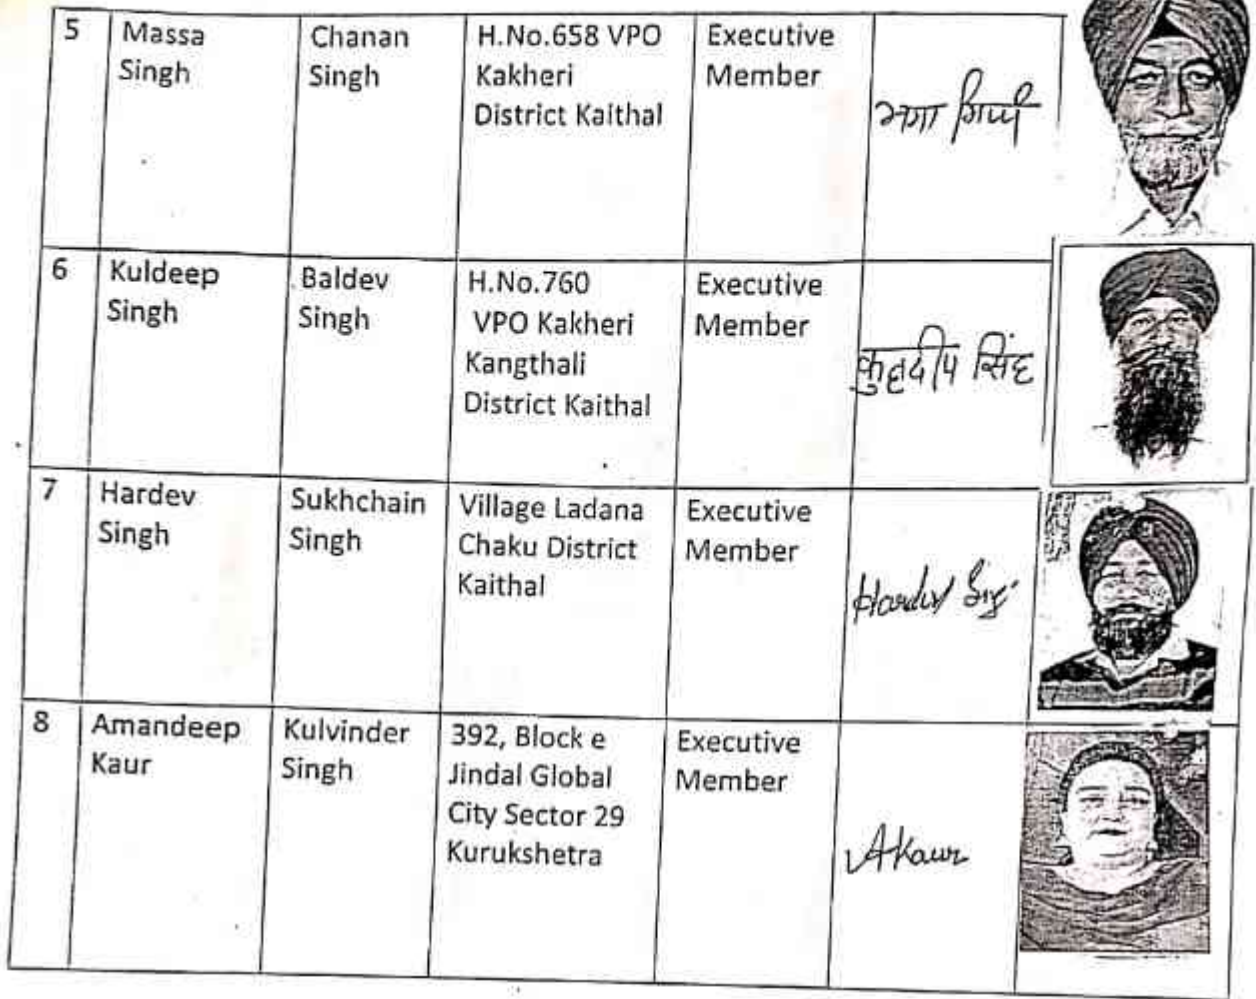 5
Massa
Singh
Chanan
Singh
H.No.658 VPO
Kakheri
District Kaithal
Executive
Member
6
Kuldeep
Singh
Baldev
Singh
H.No.760
VPO Kakheri
Kangthali
District Kaithal
Executive
Member
कुलदीप सिंह
7
Hardev
Singh
Sukhchain
Singh
Village Ladana
Chaku District
Kaithal
Executive
Member
Hardev Singh
8
Amandeep
Kaur
Kulvinder
Singh
392, Block e
Jindal Global
City Sector 29
Kurukshetra
Executive
Member
AKaur